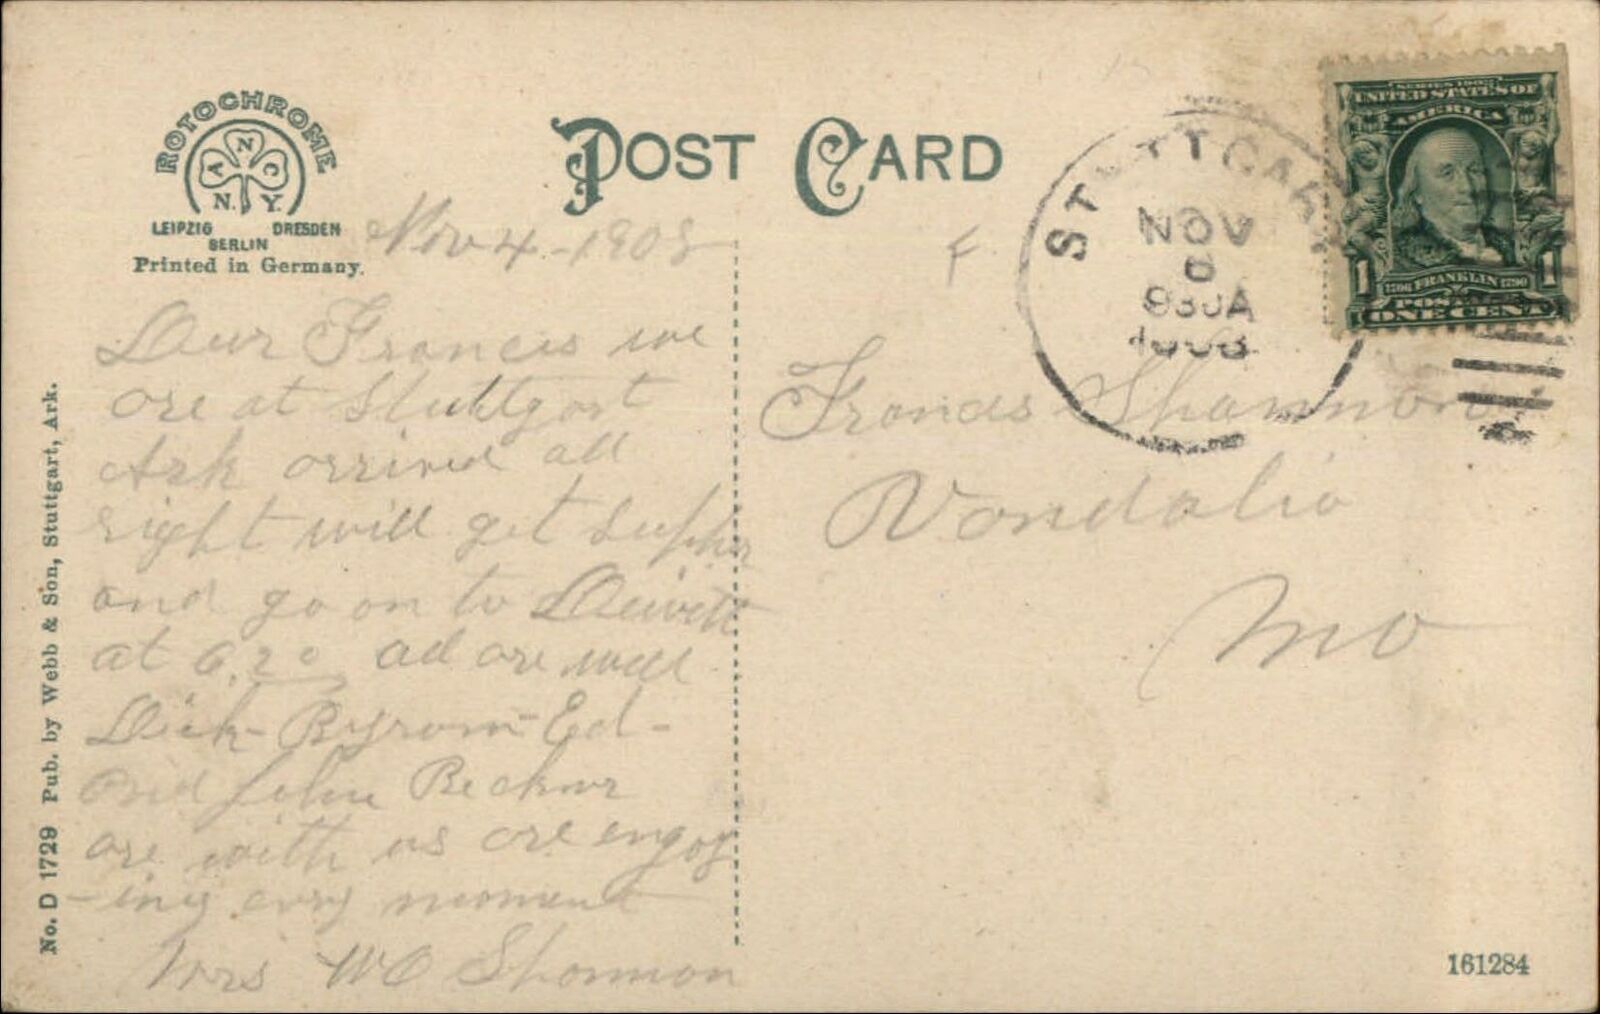 ROTOCHROME
A N C
N. Y.
LEIPZIG DRESDEN
BERLIN
Printed in Germany.
POST CARD
STUTTGART
NOV
6
930A
1908
SERIES 1902
UNITED STATES OF
AMERICA
1 1
1706 FRANKLIN 1790
POSTAGE
ONE CENT
Nov 4 - 1908
Dear Francis we
are at Stuttgart
Ark arrived all
right will get supper
and go on to Dewitt
at 6.20 all are well
Dick - Byrom - Ed -
and John Beckner
are with us are engoy
-ing evry moment
Mrs WC Shannon
F
Francis Shannon
Vandalia
Mo
No. D 1729 Pub. by Webb & Son, Stuttgart, Ark.
161284